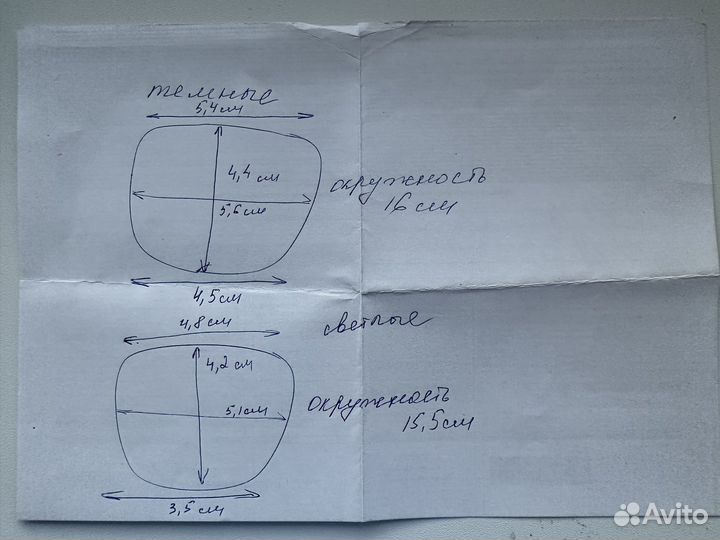 темные
5,4 см
4,4 см
окружность
16 см
5,6 см
4,5 см
4,8 см
светлые
4,2 см
окружность
5,1 см
15,5 см
3,5 см
Avito